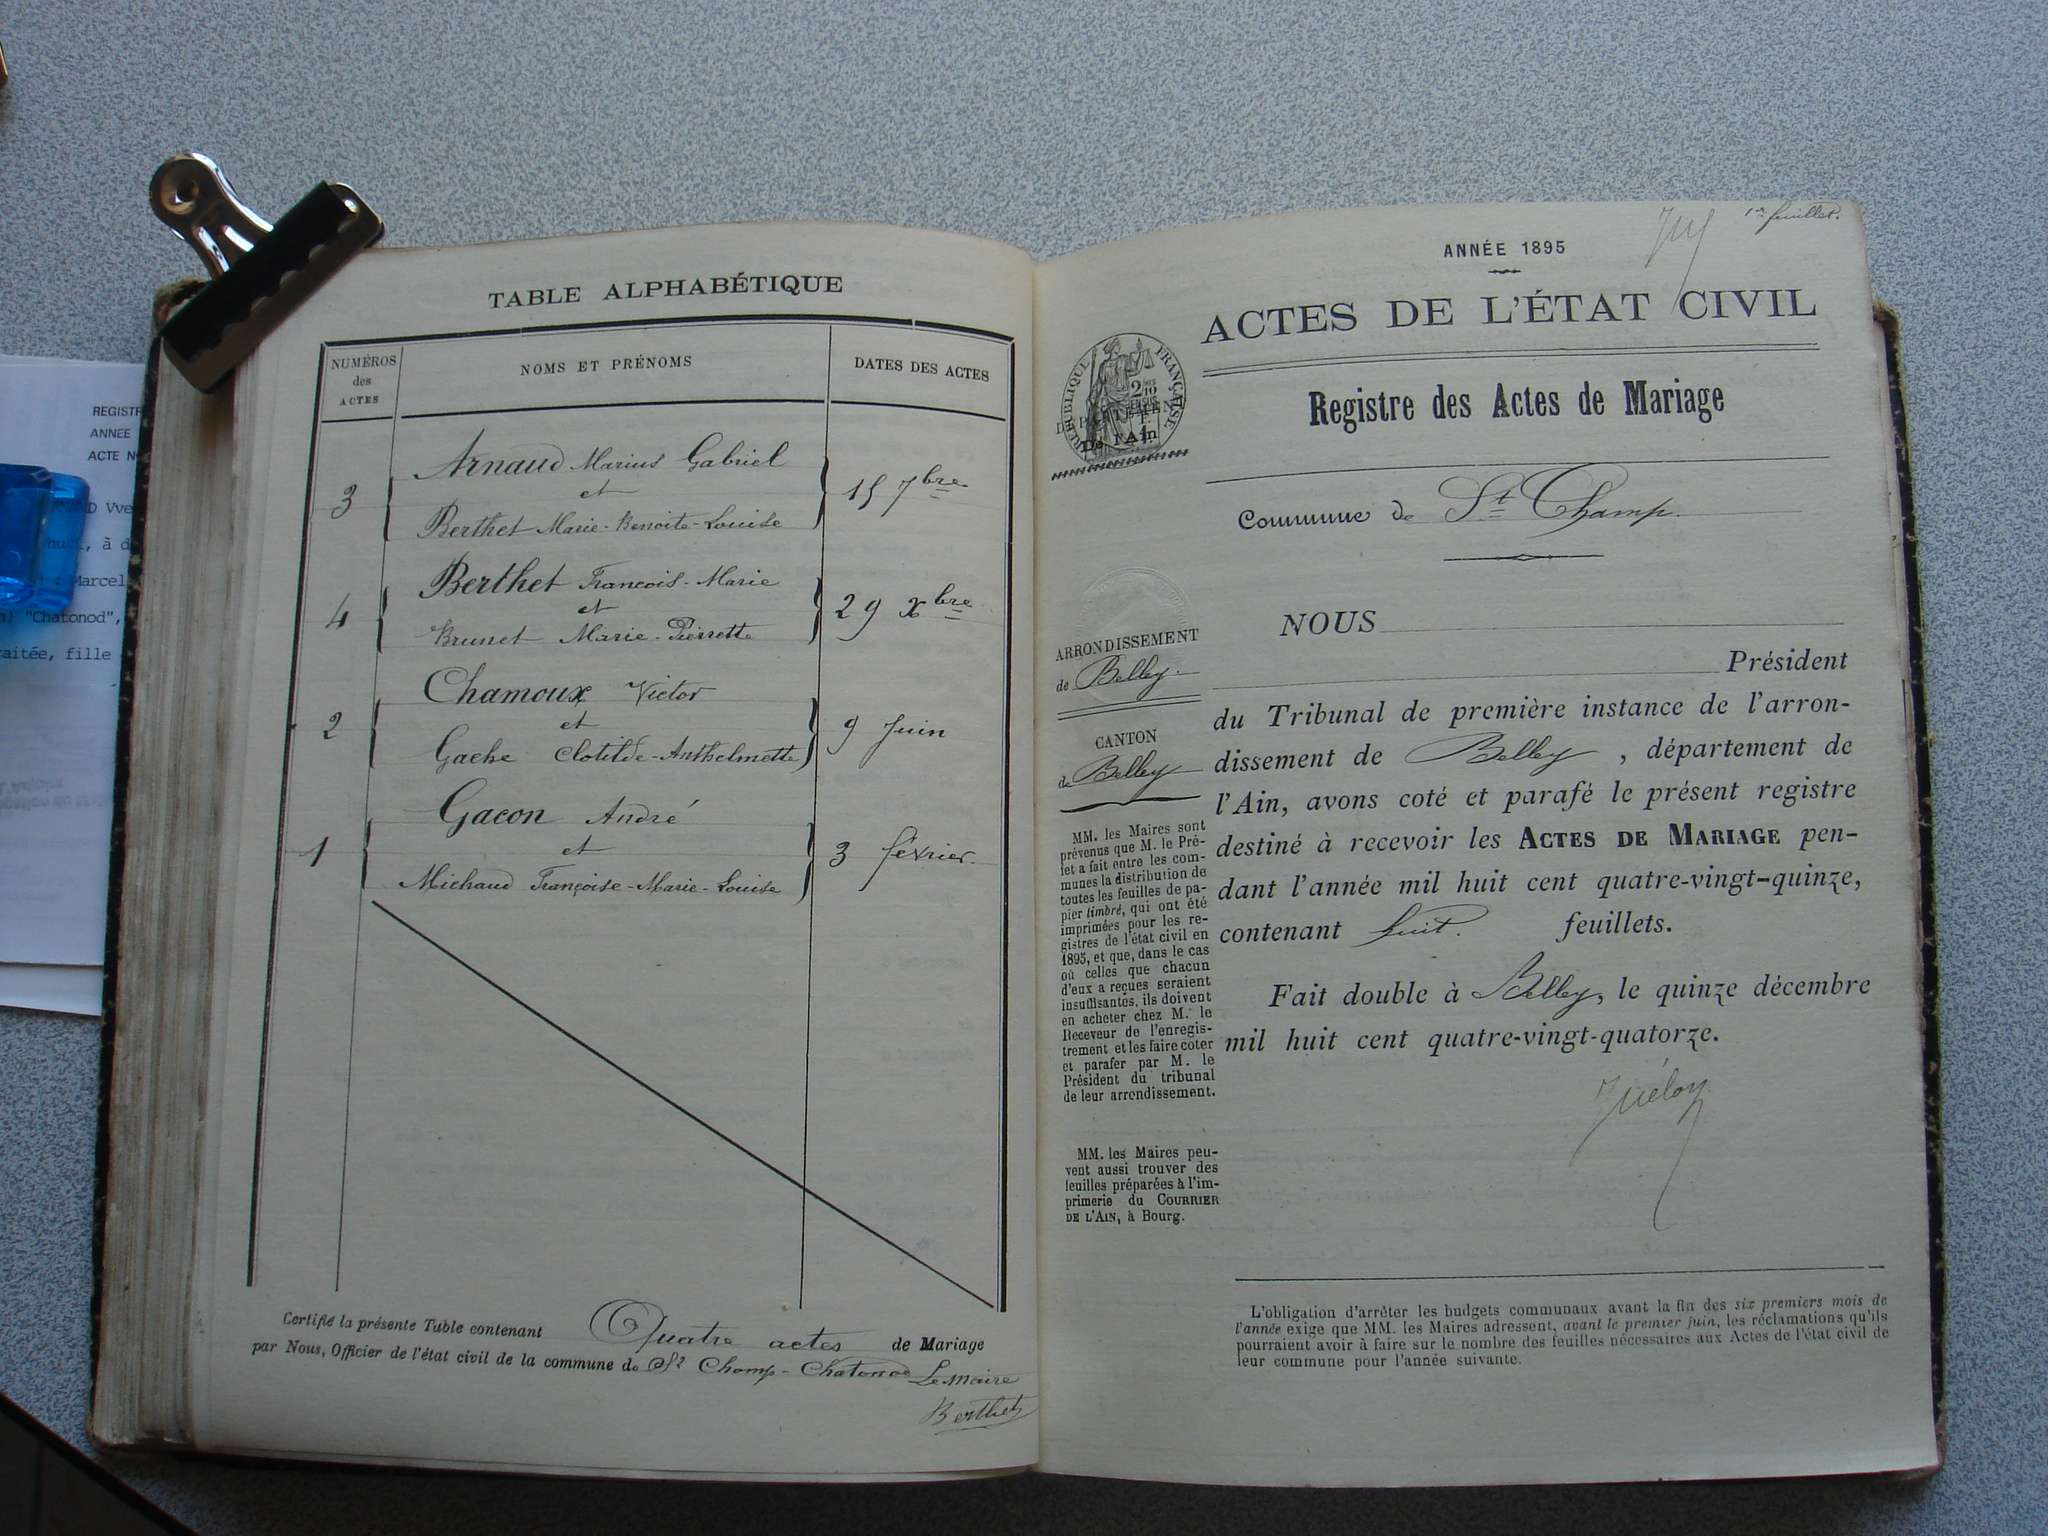 REGISTR
ANNEE
ACTE N
D Vve
, à d
: Marcel
) "Chatonod",
raitée, fille
TABLE ALPHABÉTIQUE
NUMÉROS des ACTES
NOMS ET PRÉNOMS
DATES DES ACTES
Arnaud Marius Gabriel
3 et 15 7bre
Berthet Marie-Benoite-Louise
Berthet François-Marie
4 et 29 Xbre
Brunet Marie-Pierrette
Chamoux Victor
2 et 9 Juin
Gache Clotilde-Anthelmette
Gacon André
1 et 3 février.
Michaud Françoise-Marie-Louise
Certifié la présente Table contenant Quatre actes de Mariage
par Nous, Officier de l'état civil de la commune de St Champ-Chatonod Le maire
Berthet
1er feuillet.
ANNÉE 1895
ACTES DE L'ÉTAT CIVIL
RÉPUBLIQUE FRANÇAISE
De l'Ain
Registre des Actes de Mariage
Commune de St Champ.
ARRONDISSEMENT
de Belley.
CANTON
de Belley
MM. les Maires sont
prévenus que M. le Pré-
fet a fait entre les com-
munes la distribution de
toutes les feuilles de pa-
pier timbré, qui ont été
imprimées pour les re-
gistres de l'état civil en
1895, et que, dans le cas
où celles que chacun
d'eux a reçues seraient
insuffisantes, ils doivent
en acheter chez M. le
Receveur de l'enregis-
trement et les faire coter
et parafer par M. le
Président du tribunal
de leur arrondissement.
MM. les Maires peu-
vent aussi trouver des
feuilles préparées à l'im-
primerie du COURRIER
DE L'AIN, à Bourg.
NOUS
Président
du Tribunal de première instance de l'arron-
dissement de Belley, département de
l'Ain, avons coté et parafé le présent registre
destiné à recevoir les ACTES DE MARIAGE pen-
dant l'année mil huit cent quatre-vingt-quinze,
contenant huit. feuillets.
Fait double à Belley, le quinze décembre
mil huit cent quatre-vingt-quatorze.
L'obligation d'arrêter les budgets communaux avant la fin des six premiers mois de
l'année exige que MM. les Maires adressent, avant le premier juin, les réclamations qu'ils
pourraient avoir à faire sur le nombre des feuilles nécessaires aux Actes de l'état civil de
leur commune pour l'année suivante.